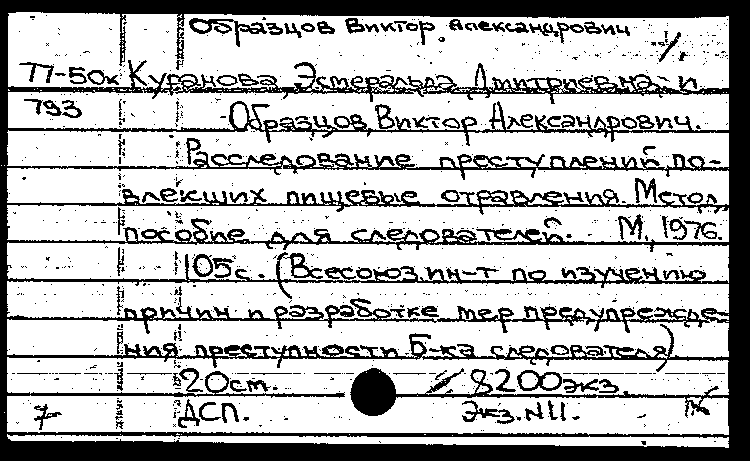 Образцов Виктор Александрович
П-50к Куранова, Эстеральда Дмитриевна и
793 Образцов, Виктор Александрович.
Расследование преступлений, по-
влекших пищевые отравления. Метод.
пособие для следователей. М., 1976.
105с. (Всесоюз. ин-т по изучению
причин и разработке мер предупрежде-
ния преступности Б-ка следователя)
20см. 8200экз.
7 ДСП. Экз. N11.